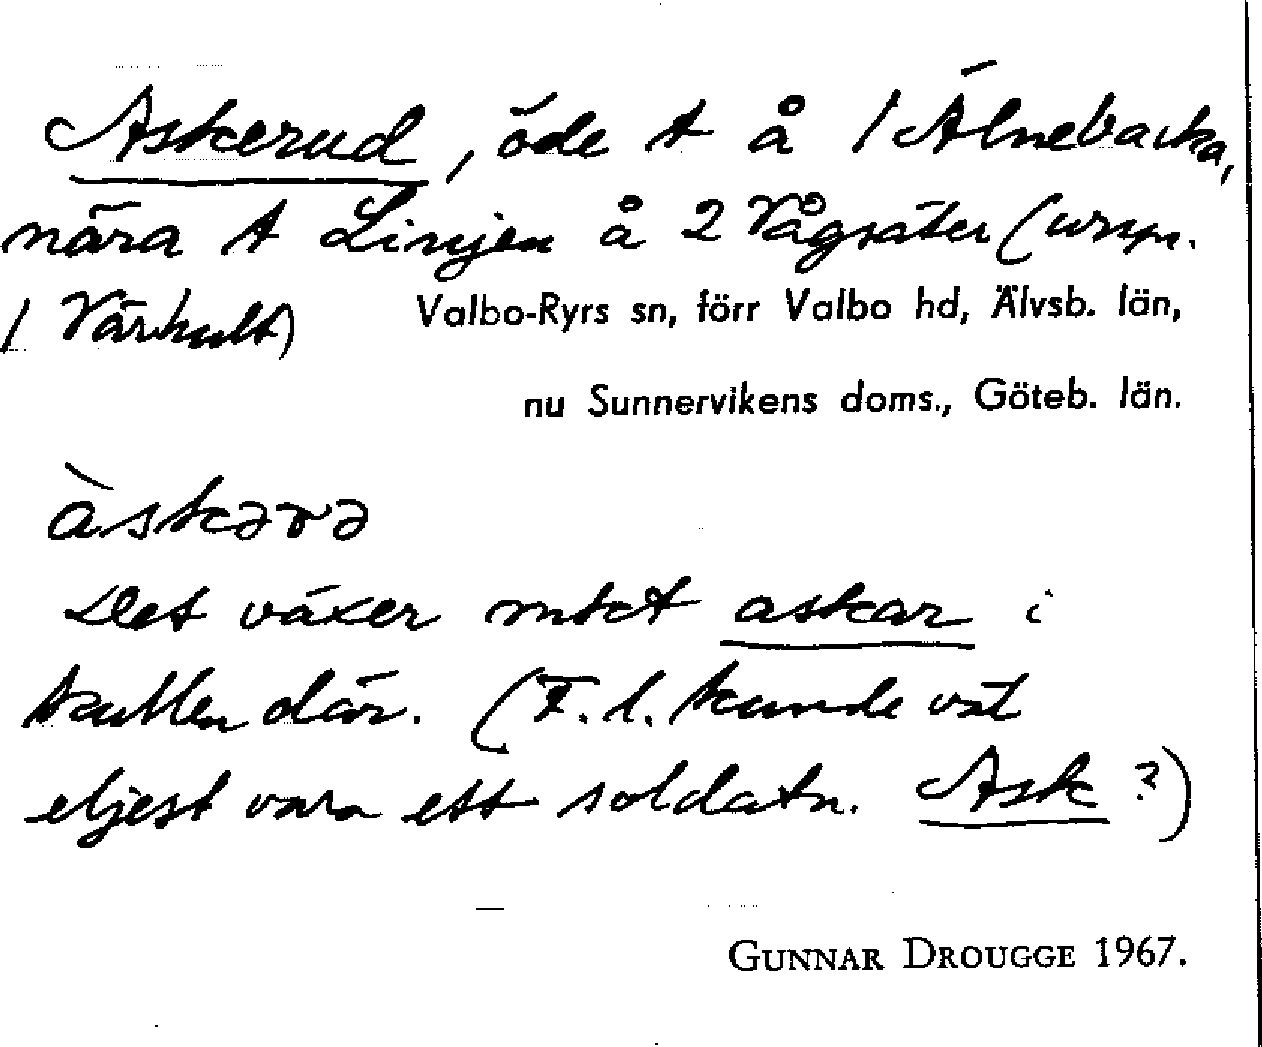 Askerud, öde t å 1 Älnebacka,
nära t Linjen å 2 Vågsäter (ursp.
1 Värhult) Valbo-Ryrs sn, förr Valbo hd, Älvsb. län,
nu Sunnervikens doms., Göteb. län.
àskərə
Det växer mket askar i
kullen där. (F. l. kunde väl
eljest vara ett soldatn. Ask ?)
GUNNAR DROUGGE 1967.